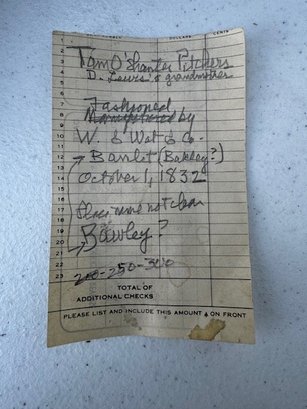 DOLLARS CENTS
1
2
3 Tam O'Shanter Pitchers
4
5 D. Lewis's grandmother
6
7
8 Fashioned
9 by
10 W.
11
12 (Bakley?)
13
14 October 1, 1832
15
16
17 Place name not clear
18
19
20 Bawley?
21
22
23 200-250-300
TOTAL OF
ADDITIONAL CHECKS
PLEASE LIST AND INCLUDE THIS AMOUNT ON FRONT